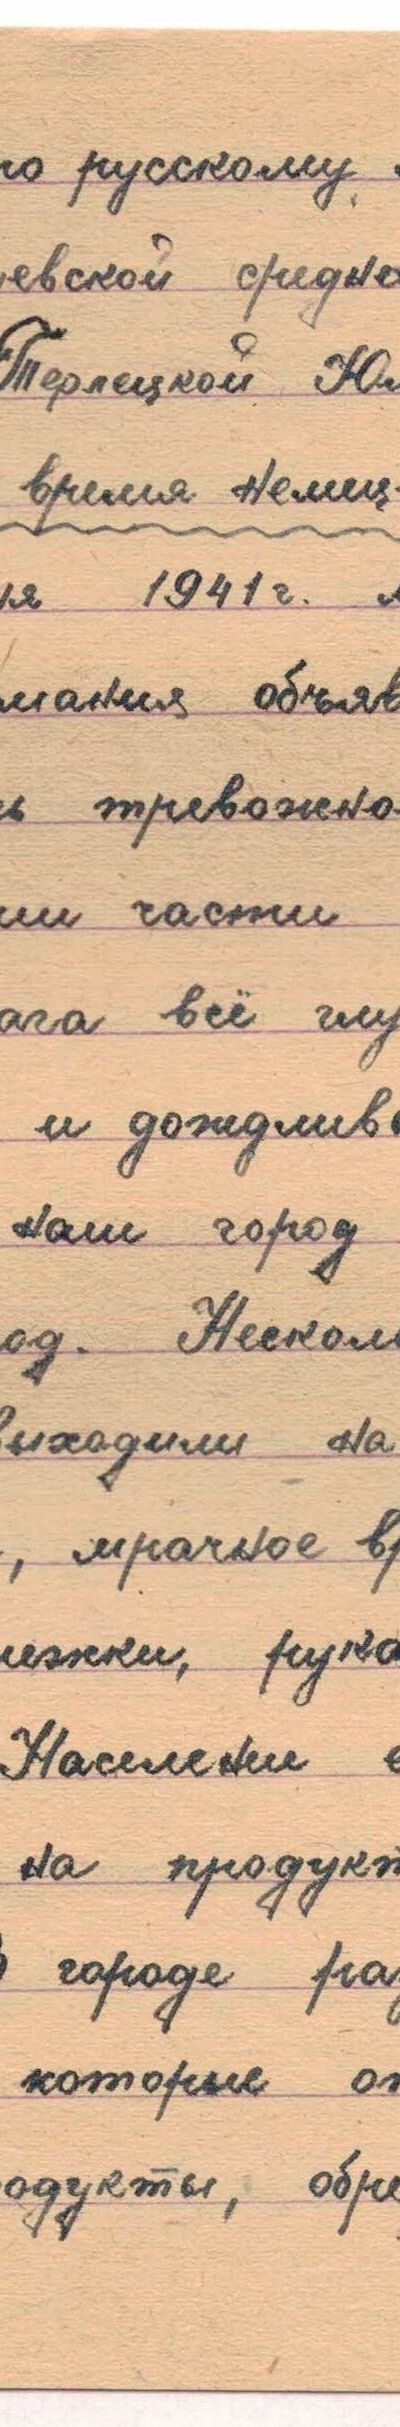 по русскому
евской средне
Терлецкой Юл
время немец-
ня 1941г.
мания объяв
ь тревожно
ши части
ага всё глу
и дождлив
наш город
од. Нескол
выходили на
, мрачное вр
ижки, рука
Населени е
на продукт
В городе раз
которые от
одукты, обре